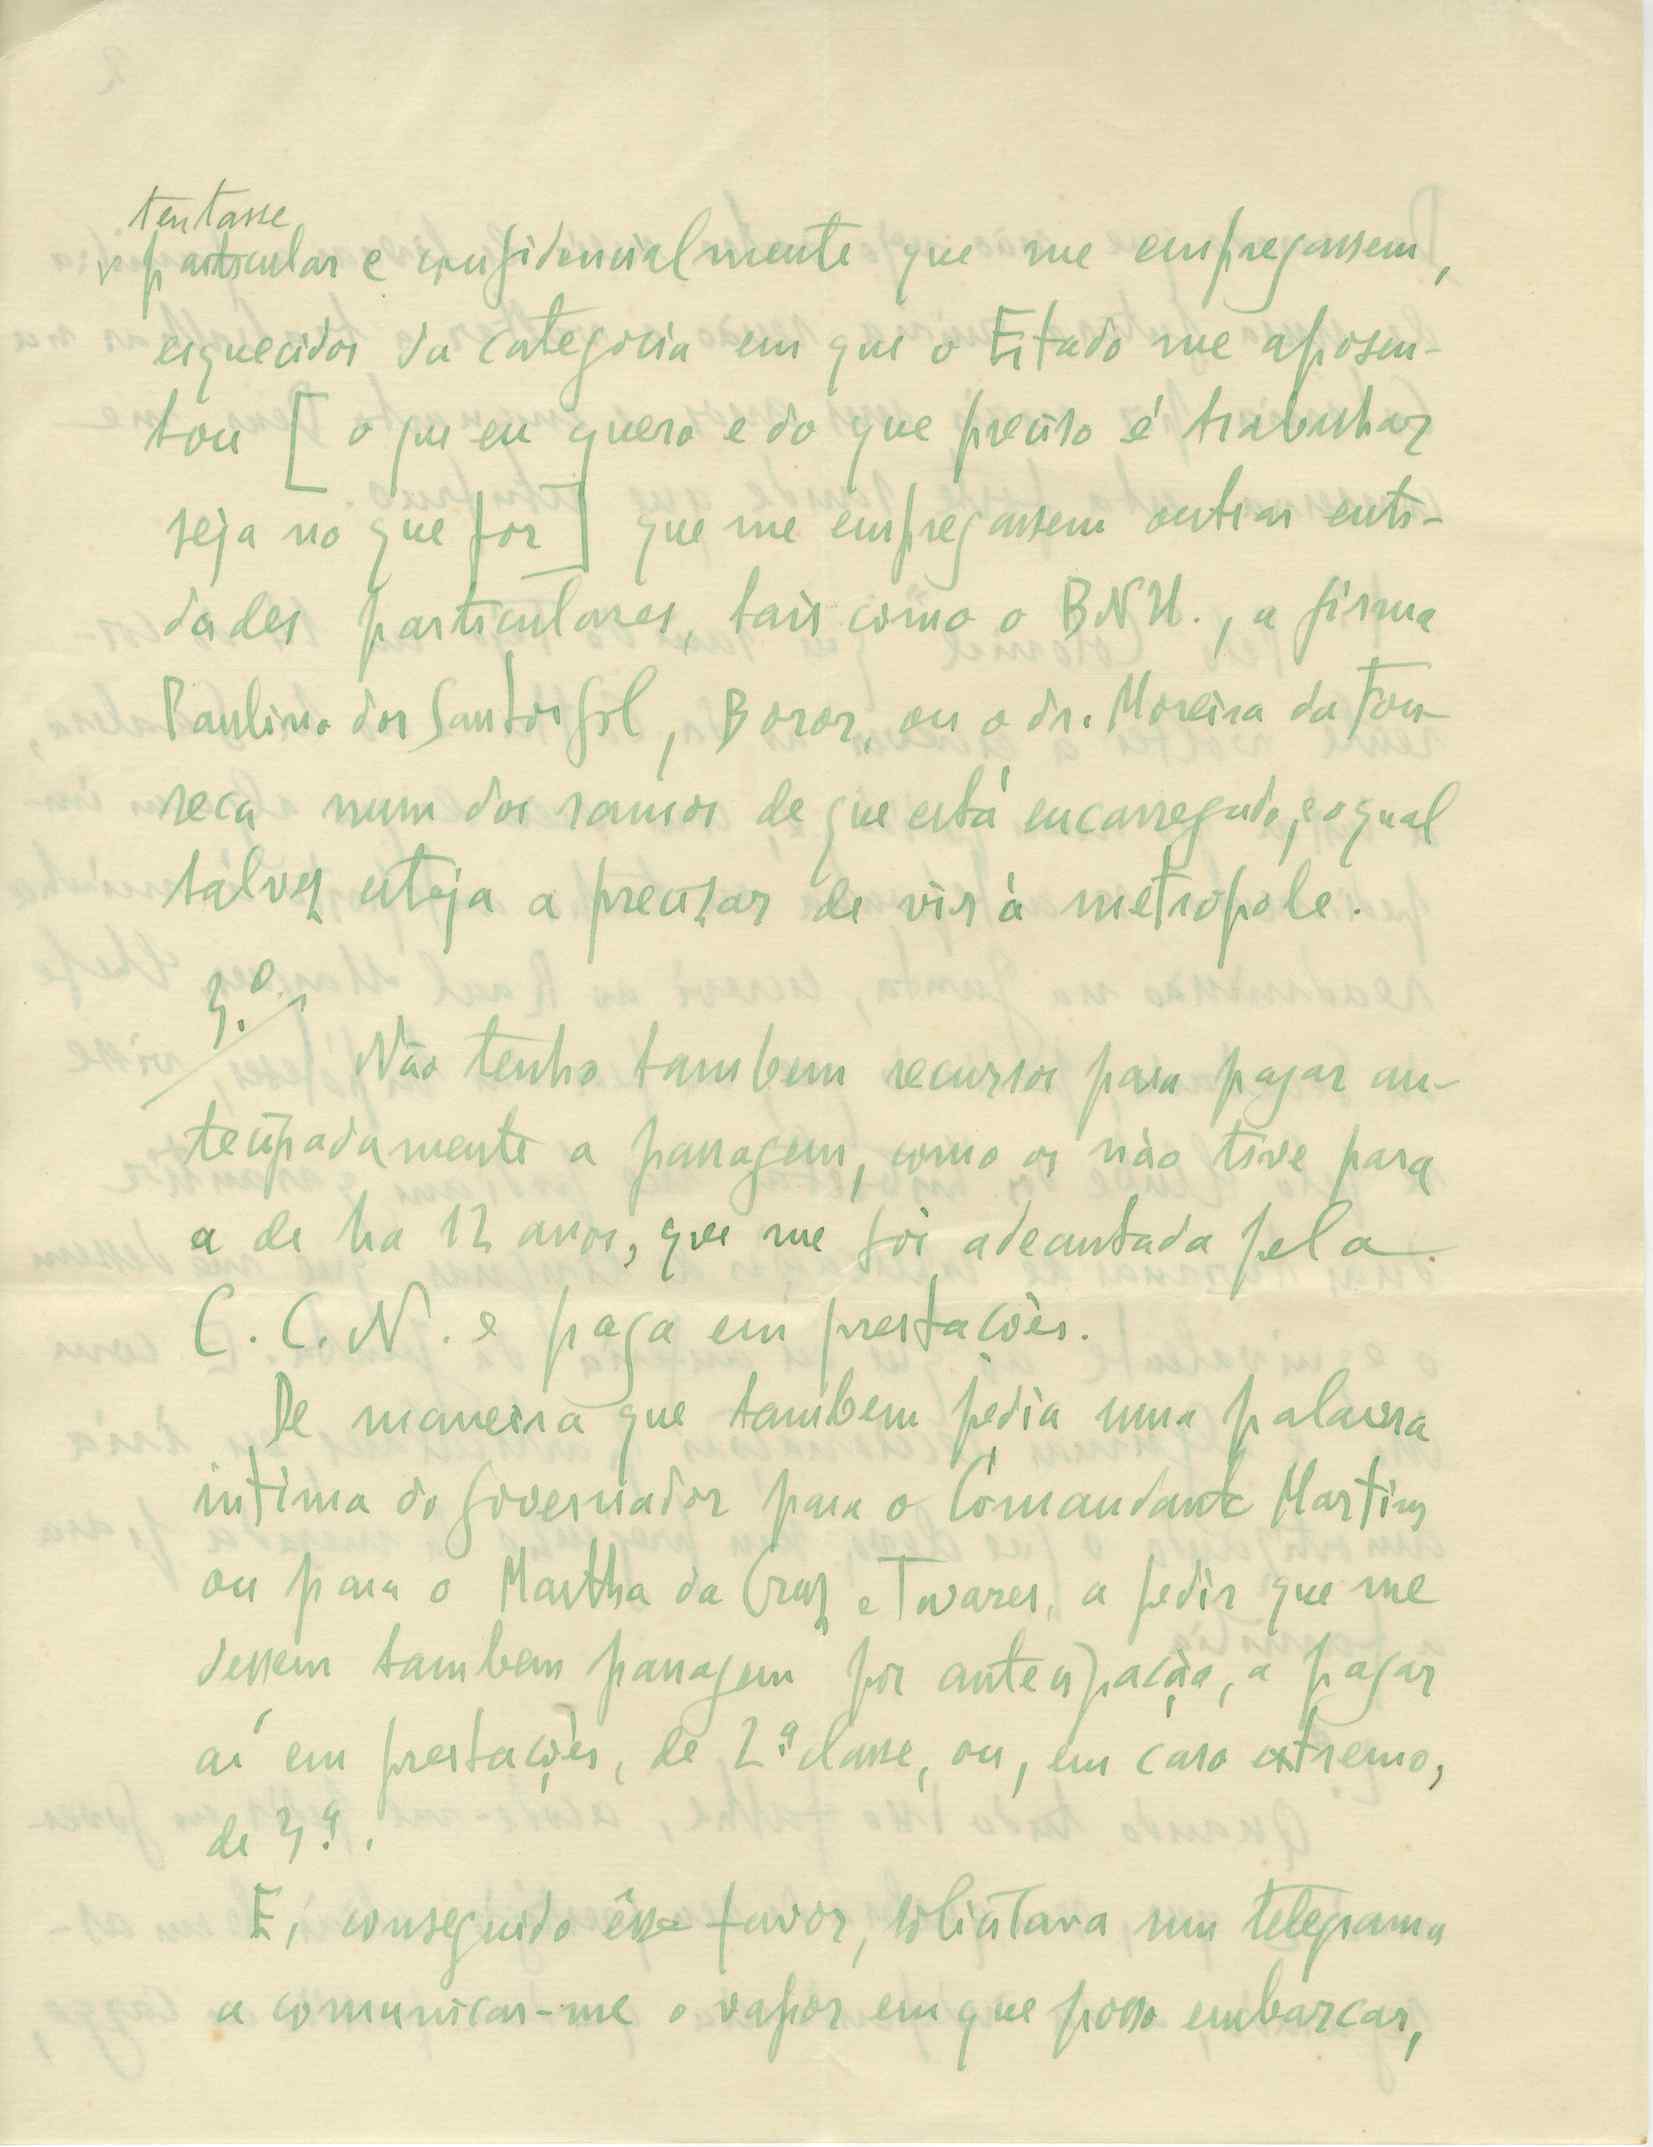 tentasse
v particular e confidencialmente que me empregassem,
esquecidos da categoria em que o Estado me aposen-
tou [ o que eu quero e do que preciso é trabalhar
seja no que for ] que me empregassem outras enti-
dades particulares, tais como o BNU., a firma
Paulino dos Santos Gil, Boror, ou o dr. Moreira da Fon-
seca num dos ramos de que está encarregado, e o qual
talvez esteja a precizar de vir à metropole.
3.º
Não tenho tambem recursos para pagar an-
tecipadamente a passagem, como os não tive para
a de ha 12 anos, que me foi adeantada pela
C. C. N. e paga em prestações.
De maneira que tambem pedia uma palavra
intima do Governador para o Comandante Martins
ou para o Martha da Cruz e Tavares, a pedir que me
dessem tambem passagem por antecipação, a pagar
aí em prestações, de 2.ª classe, ou, em caso extremo,
de 3.ª.
E, conseguido êsse favor, solicitava um telegrama
a comunicar-me o vapor em que posso embarcar,